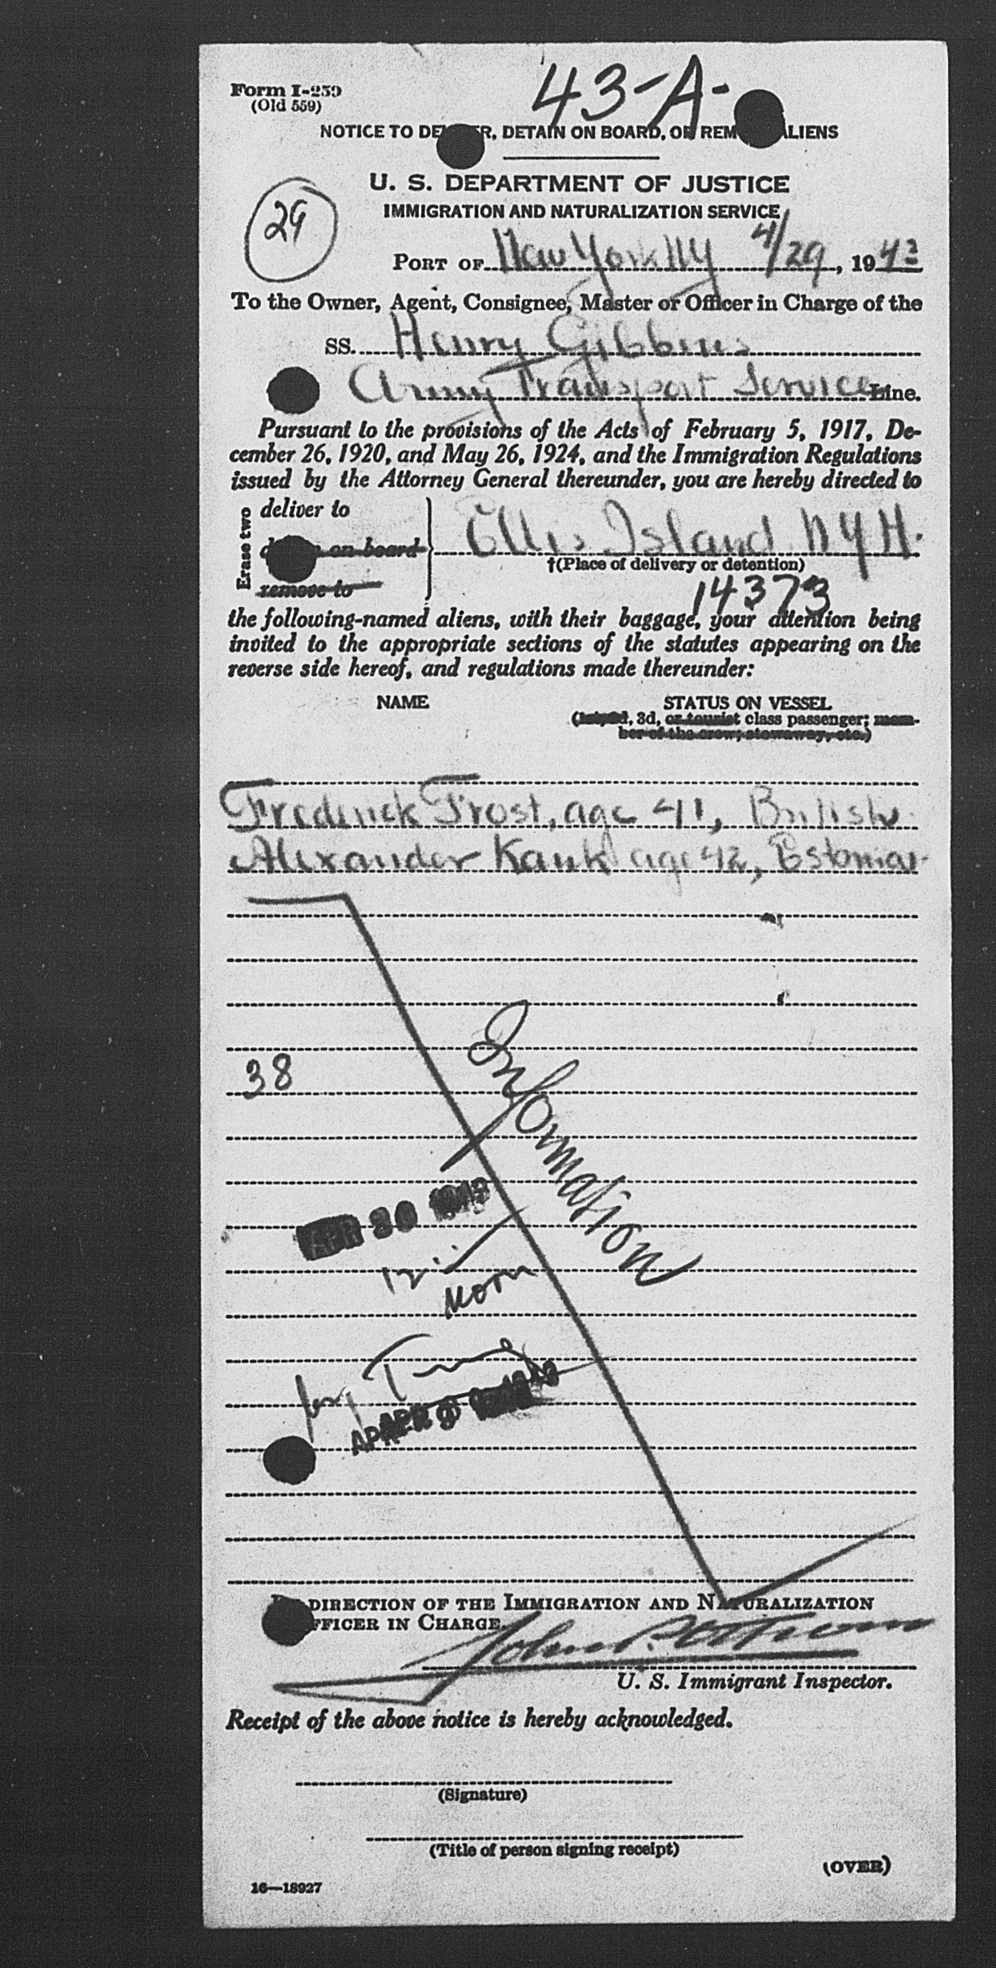 Form I-259
(Old 559)
43-A-
NOTICE TO DELIVER, DETAIN ON BOARD, OR REMOVE ALIENS
U. S. DEPARTMENT OF JUSTICE
IMMIGRATION AND NATURALIZATION SERVICE
29
PORT OF New York NY 4/29, 1943
To the Owner, Agent, Consignee, Master or Officer in Charge of the
SS. Henry Gibbins
Army Transport Service Line.
Pursuant to the provisions of the Acts of February 5, 1917, De-
cember 26, 1920, and May 26, 1924, and the Immigration Regulations
issued by the Attorney General thereunder, you are hereby directed to
Erase two
deliver to
on board
remove to
Ellis Island N.Y.H.
†(Place of delivery or detention)
14373
the following-named aliens, with their baggage, your attention being
invited to the appropriate sections of the statutes appearing on the
reverse side hereof, and regulations made thereunder:
NAME
STATUS ON VESSEL
(1st, 2d, 3d, or tourist class passenger; mem-
ber of the crew; stowaway, etc.)
Frederick Frost, age 41, British
Alexander Kauk age 42, Estonian
38
Information
APR 30 1943
12
noon
APR
DIRECTION OF THE IMMIGRATION AND NATURALIZATION
OFFICER IN CHARGE.
John P.
U. S. Immigrant Inspector.
Receipt of the above notice is hereby acknowledged.
(Signature)
(Title of person signing receipt)
(OVER)
16—18927